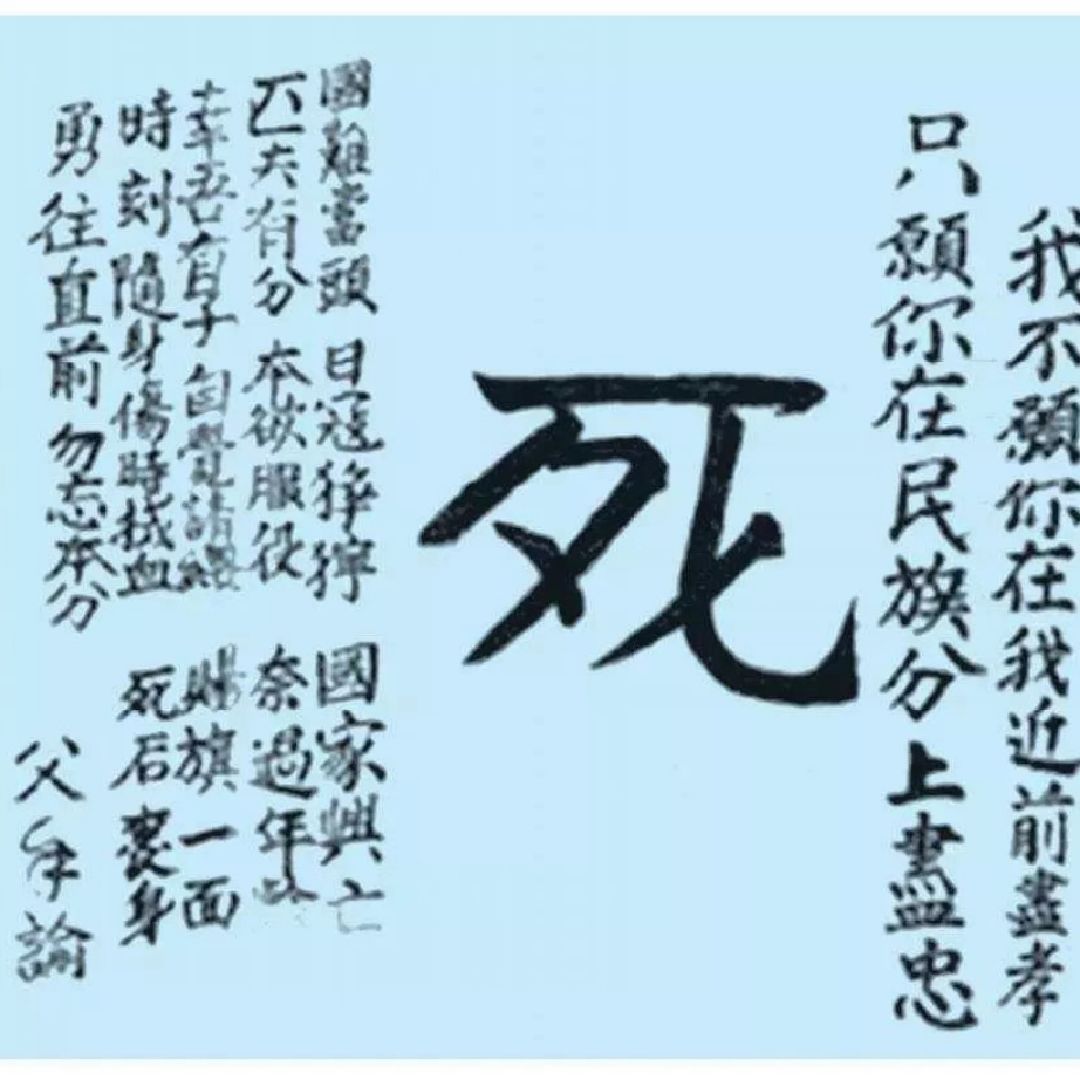 我不願你在我近前盡孝
只願你在民族分上盡忠
死
國難當頭 日寇猙獰 國家興亡
匹夫有分 本欲服役 奈過年
幸吾有子 自覺請纓 賜旗一面
時刻隨身 傷時拭血 死后裹身
勇往直前 勿忘本分
父手諭